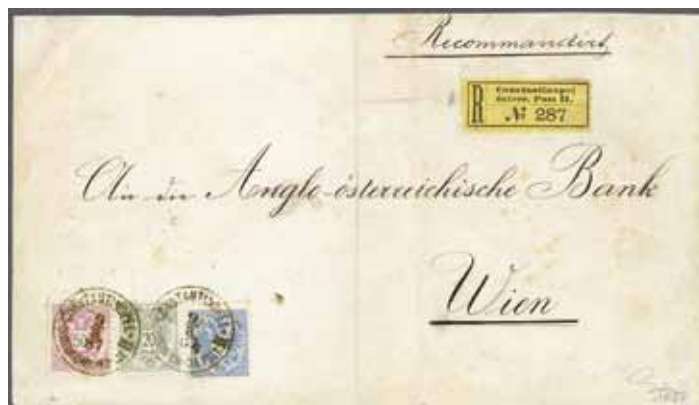 Recommandirt
R
Constantinopel
österr. Post II.
№ 287
An die Anglo-österreichische Bank
Wien
20